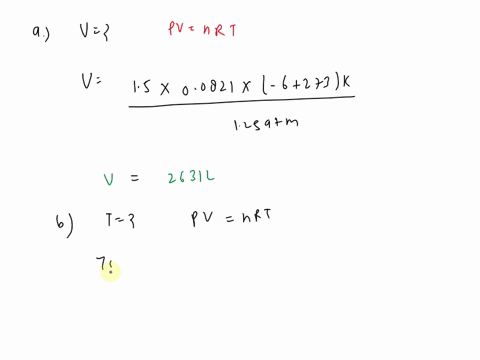 a.) V = ? PV = nRT
V = 1.5 x 0.0821 x (-6+273)K
1.25 atm
V = 2631L
b) T = ? PV = nRT